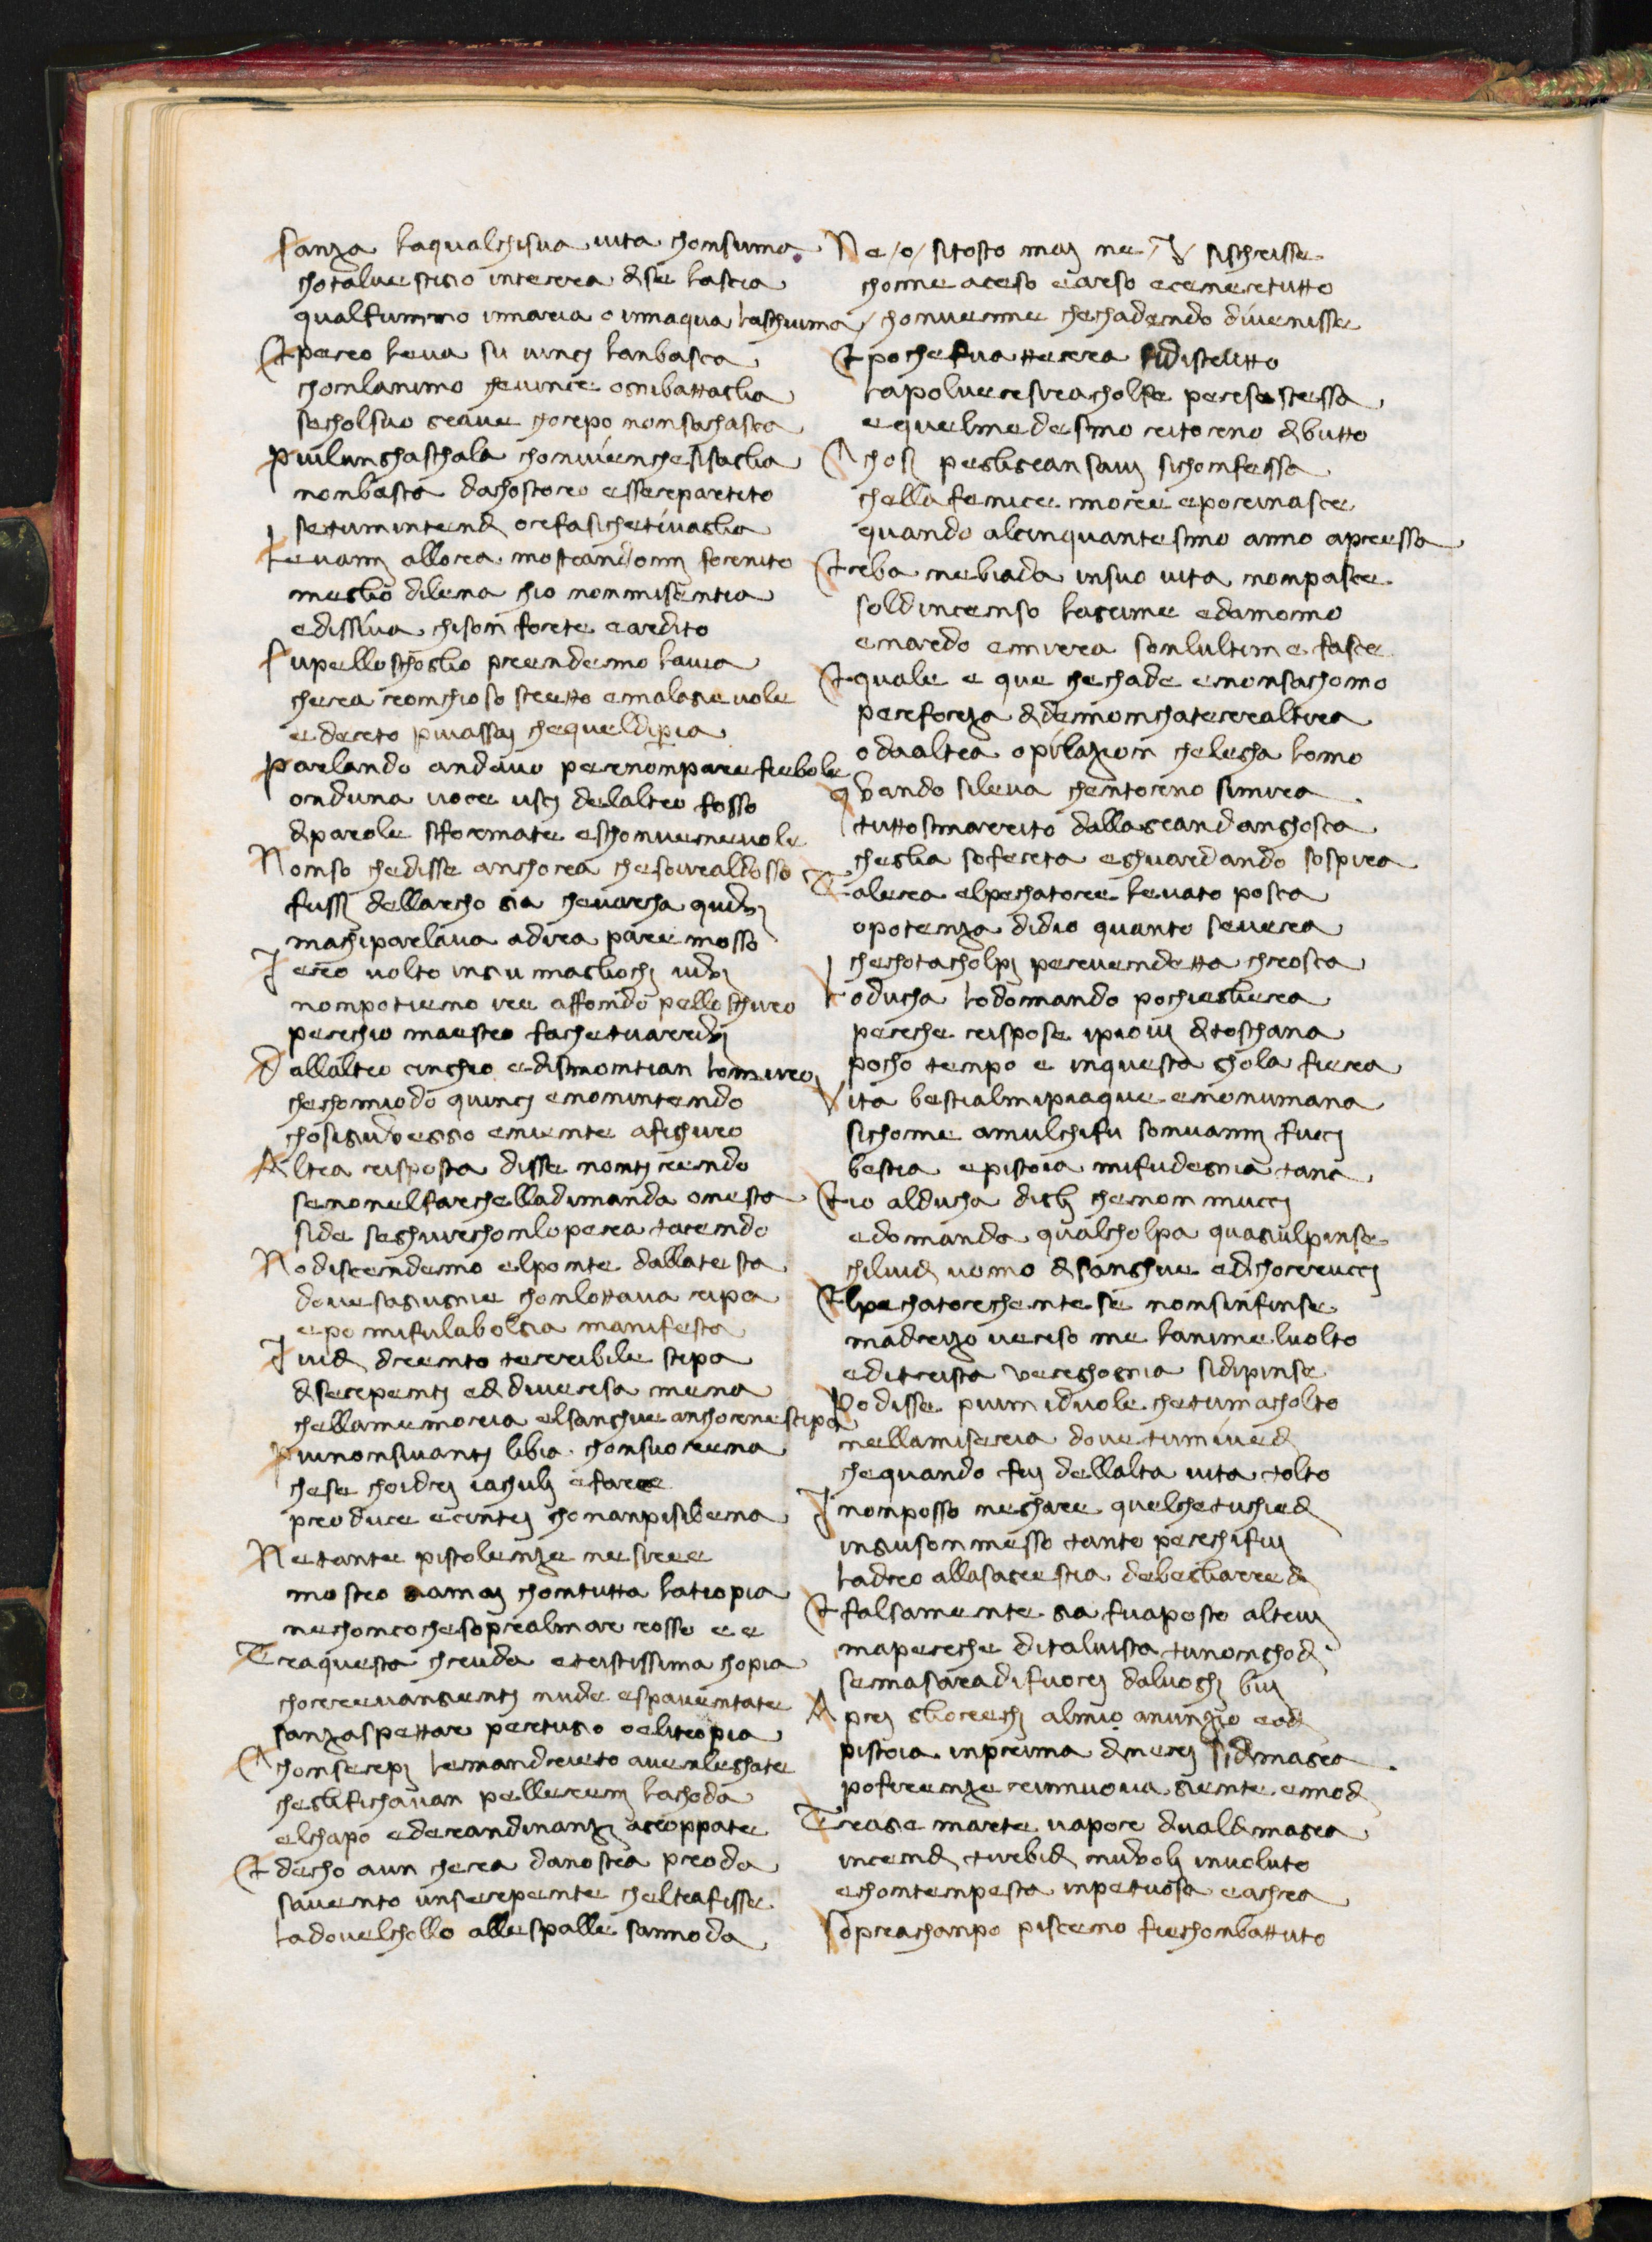 sanza laqualchisua uita chonsuma
chotalvestigio interra dise lascia
qualfummo innaria o innaqua laschiuma
Et pero leva su vinci lanbascia
chonlanimo chevince ognibattaglia
secholsuo grave chorpo nonsachascia
Piulunghaschala chonvienchesisaglia
nonbasta dachostoro esserepartito
setumintendi orfasichetivaglia
Levami allora mostrandomi fornito
meglio dilena chio nonmisentia
edissi va chison forte eardito
Supelloschoglio prendemo lavia
chera ronchioso stretto emalagevole
ederto piuassai chequeldipria
Parlando andavo pernonparerfiebole
onduna voce usci delaltro fosso
diparole sformate eschonvenevole
Nonso chedisse anchora chesovraldosso
fussi dellarcho gia chevarcha quivi
machiparlava adira parie mosso
I ero volto ingiu magliochi vivi
nonpotieno ire affondo pello schuro
perchio maestro fachetuarrivi
Dallaltro cinghio edismontian lomuro
chechomiodo quinci enonintendo
chosigiuvegio eniente afighuro
Altra risposta disse nonti rendo
senonelfarchelladimanda onesta
side seghuirchonlopera tacendo
Noi discendemo elponte dallatesta
dovesagiugnie chonlottava ripa
epo mifulabolgia manifesta
I vidi drento terribile stipa
diserpenti edi diversa mena
chellamemoria elsanghue anchormistipa
Piunonsivanti libia chonsuorena
chese cheidri iachuli efaree
produce ecintri chonanfisibena
Ne tante pistolenze nesiree
mostro giamai chontutta latiopia
nechoncochesopralmar rosso ee
Traquesta chruda etristissima chopia
chorrevangienti nude espaventate
sanzaspettar pertugio oelitropia
Chonserpi lemandrieto avenleghate
cheglifichavan pellereni lachoda
elchapo ederandinanzi agroppate
Et decho aun chera danostra proda
savento unserpente cheltrafisse
ladovelchollo allespalle sannoda
Ne /o/ sitosto mai ne /I/ sischrisse
chome aceso earso ecenertutto
chonvenne chechadendo divenisse
Et poichefua tterra sidistrutto
lapolveresiracholse persestessa
equelmedesimo ritorno dibutto
Chosi pegligransavi sichonfessa
chella fenice more eporinasce
quando alcinquantesimo anno apressa
Erba nebiada insuo vita nonpasce
soldincenso lagrime edamomo
enardo emirra sonlultime fasce
Et quale e que chechade enonsachomo
perforza didemonchaterraltira
odaaltra opilazion chelegha lomo
Quando sileva chentorno simira
tuttosmarrito dallagrandanghoscia
cheglia soferta eghuardando sospira
Talera elpechatore levato poscia
opotenza didio quante severa
chechotacholpi pervendetta chroscia
Loducha lodomando pochieglera
perche rispose ipiovi ditoschana
pocho tempo e inquesta ghola fiera
Vita bestialmipiaque enonumana
sichome amulchifu sonvanni fucci
bestia epistoia mifudegnia tana
Et io alducha digli chenon mucci
edomanda qualcholpa quagiulpinse
chilvidi uomo disanghue edichorrucci
Elpechatorechentese nonsinfinse
madrizo verso me lanimelvolto
editrista verghognia sidipinse
Po disse piumiduole chetumacholto
nellamiseria dovetumivedi
chequando fui dellalta uita tolto
I nonposso neghare quelchetuchiedi
ingiusonmesso tanto perchifui
ladro allasagrestia debegliarredi
Et falsamente gia fuaposto altrui
maperche ditalvista tunonghodi
semasaradifuori daluoghi bui
Apri gliorechi almio anunzio eodi
pistoia inprima dineri sidimagra
pofirenze rinnuova giente emodi
Tragie marte vapor dvaldimagra
incendi turbidi nuvoli involuto
echontempesta inpetuosa eachra
Soprachanpo pisceno fiechonbattuto